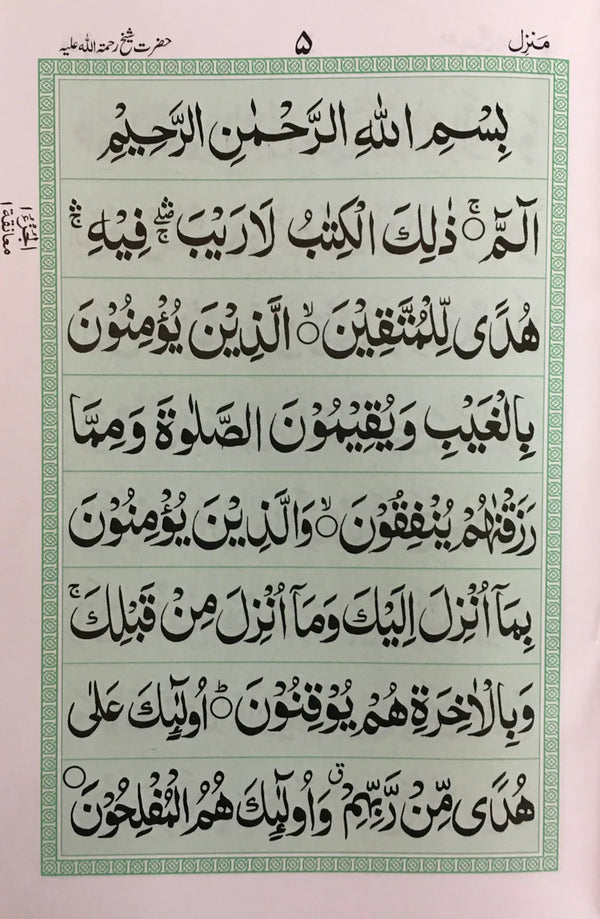 مَنزِل ۵ حضرت شیخ رحمۃ اللہ علیہ
بِسْمِ اللهِ الرَّحْمٰنِ الرَّحِيْمِ
الٓمّٓ ۚ○ ذٰلِكَ الْكِتٰبُ لَا رَيْبَ ۛۖۚ فِيْهِ ۛۚ
هُدًى لِّلْمُتَّقِيْنَ ۙ○ الَّذِيْنَ يُؤْمِنُوْنَ
بِالْغَيْبِ وَيُقِيْمُوْنَ الصَّلٰوةَ وَمِمَّا
رَزَقْنٰهُمْ يُنْفِقُوْنَ ۙ○ وَالَّذِيْنَ يُؤْمِنُوْنَ
بِمَآ اُنْزِلَ اِلَيْكَ وَمَآ اُنْزِلَ مِنْ قَبْلِكَ ۚ
وَبِالْاٰخِرَةِ هُمْ يُوْقِنُوْنَ ؕ○ اُولٰٓئِكَ عَلٰى
هُدًى مِّنْ رَّبِّهِمْ ق وَاُولٰٓئِكَ هُمُ الْمُفْلِحُوْنَ ○
الجزء ١
معانقة ١